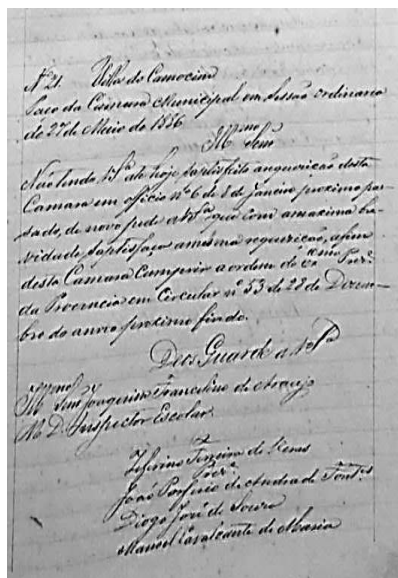 Nº 21. Villa do Camocim
Paço da Camara Municipal em Sessão ordinaria
de 27 de Maio de 1886
Illmo Senr
Não tendo VSª até hoje satisfeito a requisição desta
Camara em officio nº 6 de 8 de Janeiro proximo pas-
sado, de novo pede a VSª que com a maxima bre-
vidade satisfaça a mesma requisição, afim
desta Camara cumprir a ordem do Exmo Prezº
da Provincia em Circular nº 53 de 28 de Dezem-
bro do anno proximo findo.
Deos Guarde a VSª
Illmo Senr Joaquim Francelino de Araujo
M. D. Inspector Escolar.
Zeferino Ferreira de Veras
Prezº
João Porfirio de Andrade
Diogo José de Souza
Manoel Cavalcante de Maria